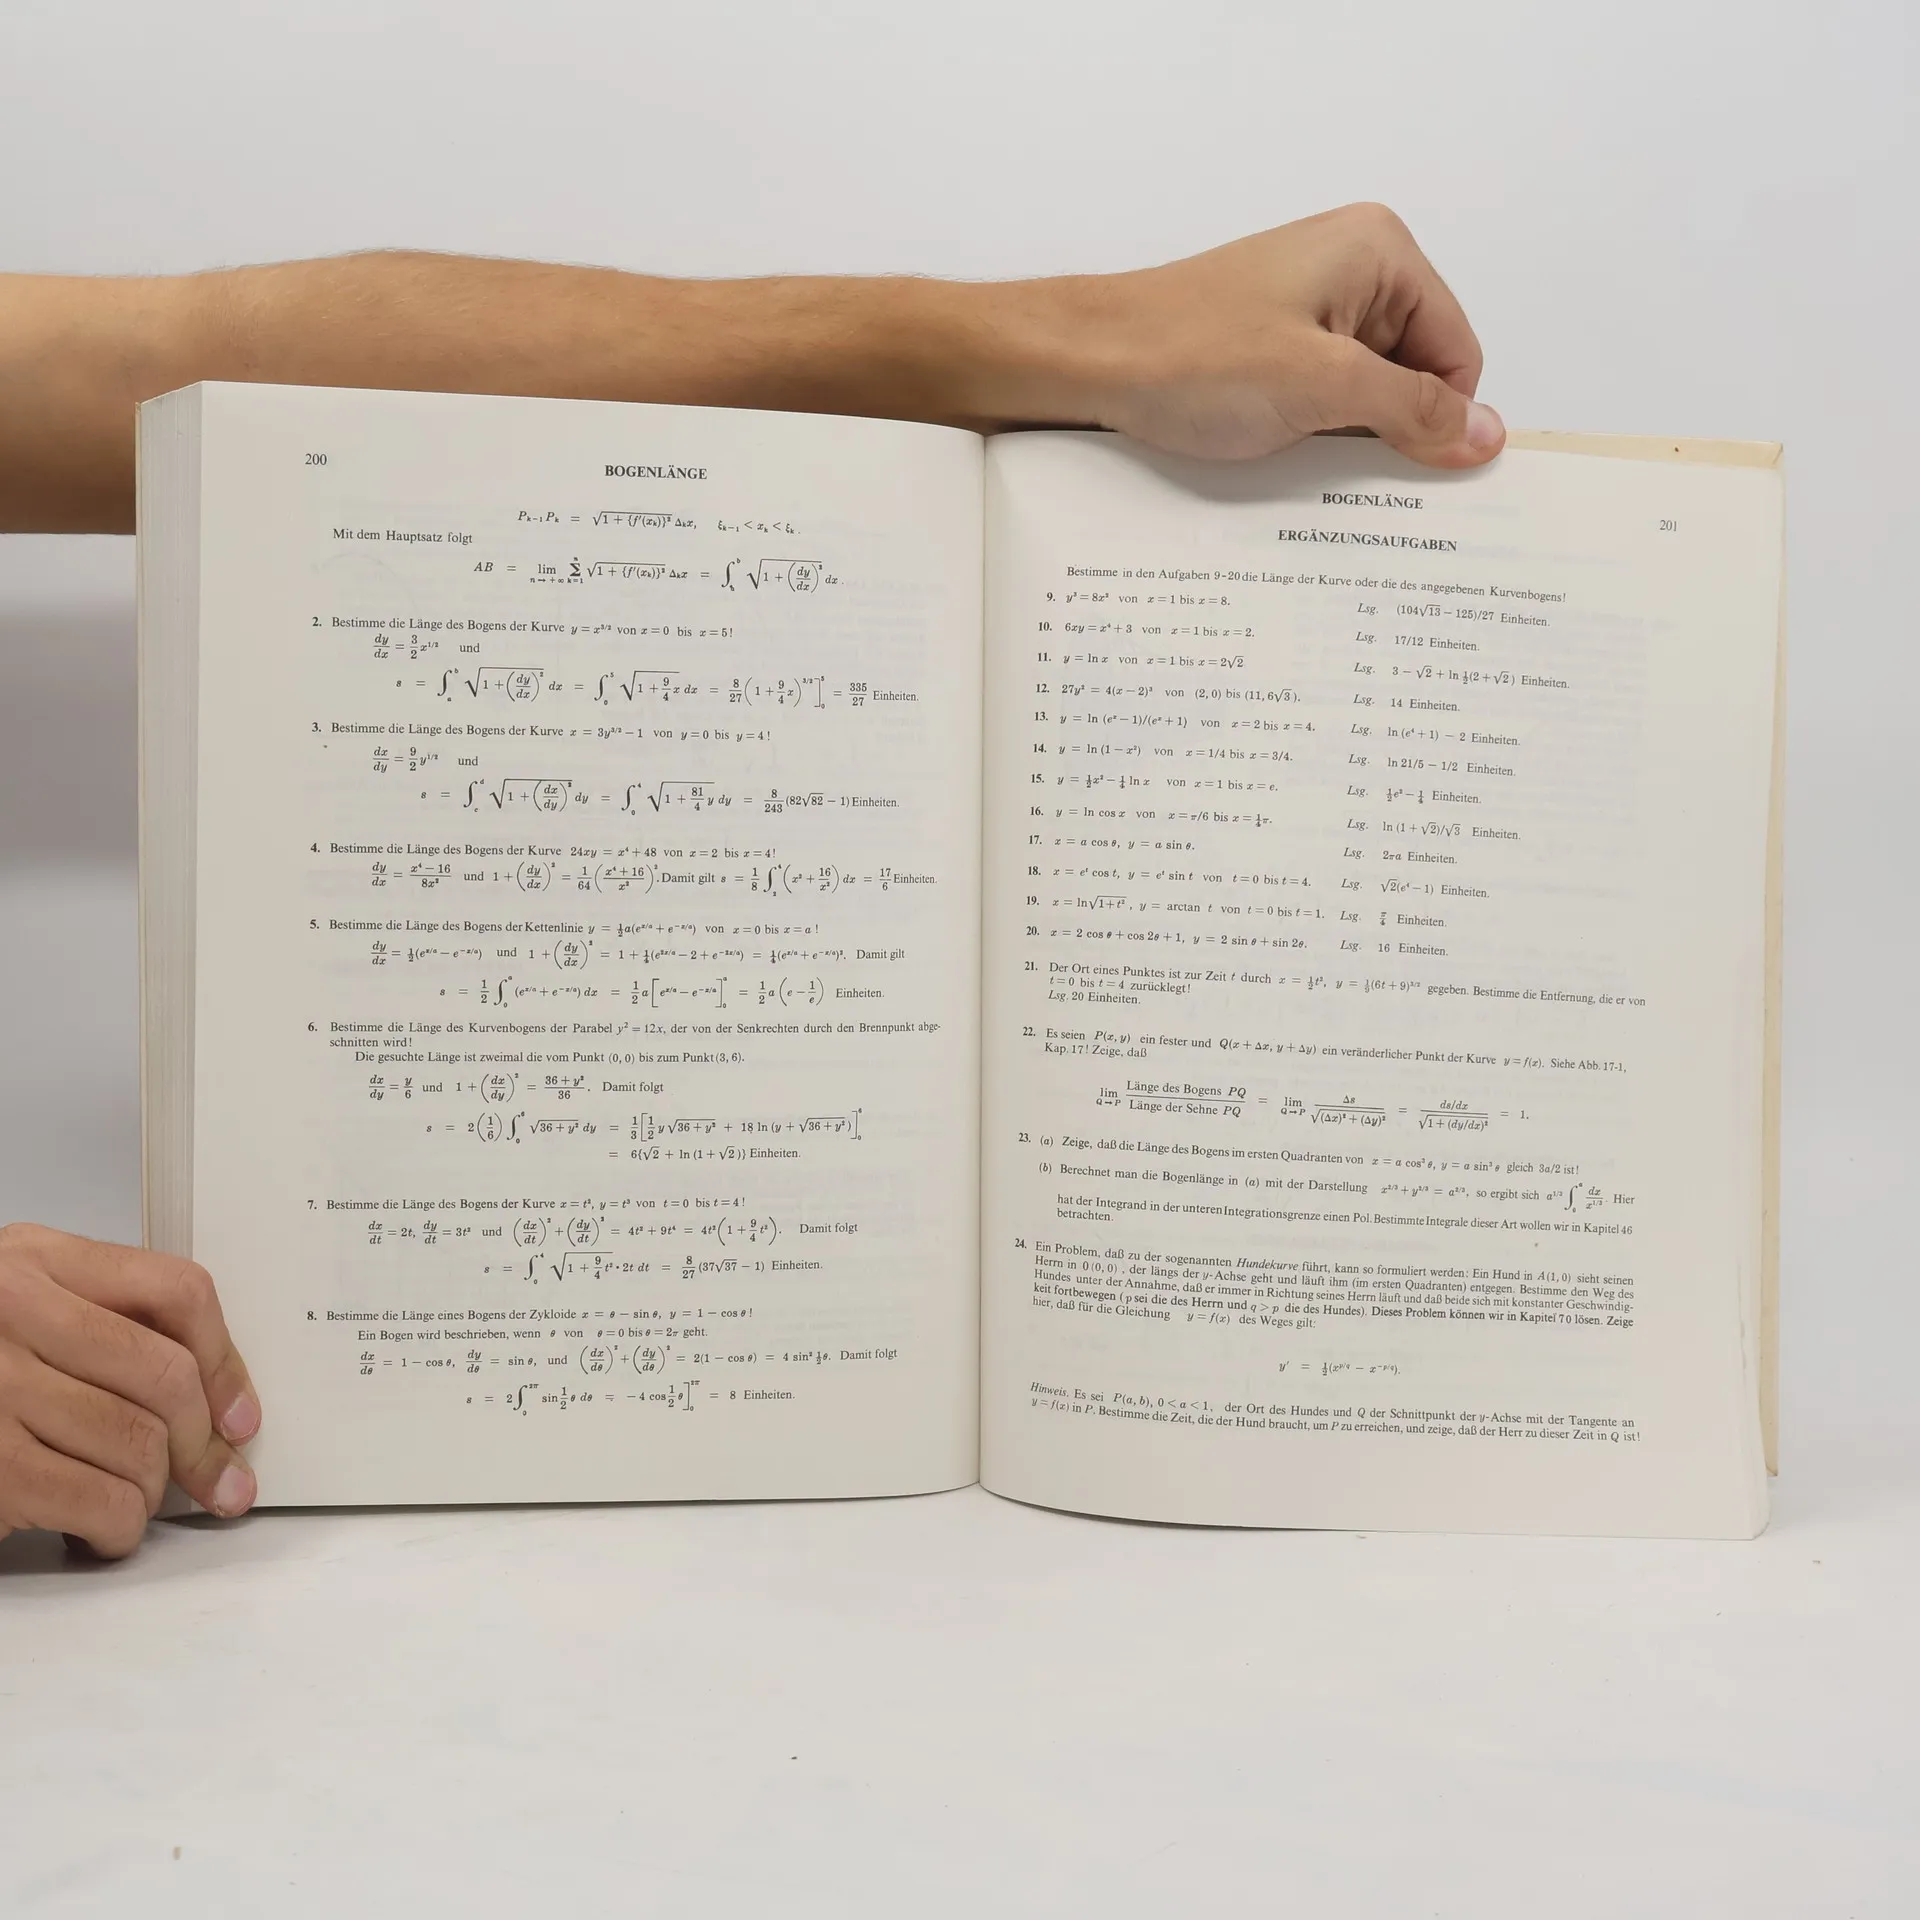 200
BOGENLÄNGE
Pₖ₋₁Pₖ = √(1 + {f′(xₖ)}²) Δₖx, ξₖ₋₁ < xₖ < ξₖ.
Mit dem Hauptsatz folgt
AB = lim_{n→+∞} Σ_{k=1}^{n} √(1 + {f′(xₖ)}²) Δₖx = ∫ₐᵇ √(1 + (dy/dx)²) dx.
2. Bestimme die Länge des Bogens der Kurve y = x^{3/2} von x = 0 bis x = 5!
dy/dx = 3/2 x^{1/2} und
s = ∫ₐᵇ √(1 + (dy/dx)²) dx = ∫₀⁵ √(1 + 9/4 x) dx = 8/27 (1 + 9/4 x)^{3/2}]₀⁵ = 335/27 Einheiten.
3. Bestimme die Länge des Bogens der Kurve x = 3y^{3/2} − 1 von y = 0 bis y = 4!
dx/dy = 9/2 y^{1/2} und
s = ∫_c^d √(1 + (dx/dy)²) dy = ∫₀⁴ √(1 + 81/4 y) dy = 8/243 (82√82 − 1) Einheiten.
4. Bestimme die Länge des Bogens der Kurve 24xy = x⁴ + 48 von x = 2 bis x = 4!
dy/dx = (x⁴ − 16)/8x² und 1 + (dy/dx)² = 1/64 ((x⁴ + 16)/x²)². Damit gilt s = 1/8 ∫₂⁴ (x² + 16/x²) dx = 17/6 Einheiten.
5. Bestimme die Länge des Bogens der Kettenlinie y = ½a(e^{x/a} + e^{−x/a}) von x = 0 bis x = a!
dy/dx = ½(e^{x/a} − e^{−x/a}) und 1 + (dy/dx)² = 1 + ¼(e^{2x/a} − 2 + e^{−2x/a}) = ¼(e^{x/a} + e^{−x/a})². Damit gilt
s = 1/2 ∫₀ᵃ (e^{x/a} + e^{−x/a}) dx = 1/2 a [e^{x/a} − e^{−x/a}]₀ᵃ = 1/2 a (e − 1/e) Einheiten.
6. Bestimme die Länge des Kurvenbogens der Parabel y² = 12x, der von der Senkrechten durch den Brennpunkt abge-
schnitten wird!
Die gesuchte Länge ist zweimal die vom Punkt (0, 0) bis zum Punkt (3, 6).
dx/dy = y/6 und 1 + (dx/dy)² = (36 + y²)/36. Damit folgt
s = 2(1/6) ∫₀⁶ √(36 + y²) dy = 1/3 [1/2 y √(36 + y²) + 18 ln (y + √(36 + y²))]₀⁶
= 6{√2 + ln (1 + √2)} Einheiten.
7. Bestimme die Länge des Bogens der Kurve x = t², y = t³ von t = 0 bis t = 4!
dx/dt = 2t, dy/dt = 3t² und (dx/dt)² + (dy/dt)² = 4t² + 9t⁴ = 4t²(1 + 9/4 t²). Damit folgt
s = ∫₀⁴ √(1 + 9/4 t²) · 2t dt = 8/27 (37√37 − 1) Einheiten.
8. Bestimme die Länge eines Bogens der Zykloide x = θ − sin θ, y = 1 − cos θ!
Ein Bogen wird beschrieben, wenn θ von θ = 0 bis θ = 2π geht.
dx/dθ = 1 − cos θ, dy/dθ = sin θ, und (dx/dθ)² + (dy/dθ)² = 2(1 − cos θ) = 4 sin² ½θ. Damit folgt
s = 2 ∫₀^{2π} sin 1/2 θ dθ = −4 cos 1/2 θ]₀^{2π} = 8 Einheiten.
BOGENLÄNGE
201
ERGÄNZUNGSAUFGABEN
Bestimme in den Aufgaben 9-20 die Länge der Kurve oder die des angegebenen Kurvenbogens!
9. y³ = 8x² von x = 1 bis x = 8. Lsg. (104√13 − 125)/27 Einheiten.
10. 6xy = x⁴ + 3 von x = 1 bis x = 2. Lsg. 17/12 Einheiten.
11. y = ln x von x = 1 bis x = 2√2 Lsg. 3 − √2 + ln ½(2 + √2) Einheiten.
12. 27y² = 4(x − 2)³ von (2, 0) bis (11, 6√3). Lsg. 14 Einheiten.
13. y = ln (eˣ − 1)/(eˣ + 1) von x = 2 bis x = 4. Lsg. ln (e⁴ + 1) − 2 Einheiten.
14. y = ln (1 − x²) von x = 1/4 bis x = 3/4. Lsg. ln 21/5 − 1/2 Einheiten.
15. y = ½x² − ¼ ln x von x = 1 bis x = e. Lsg. ½e² − ¼ Einheiten.
16. y = ln cos x von x = π/6 bis x = ¼π. Lsg. ln (1 + √2)/√3 Einheiten.
17. x = a cos θ, y = a sin θ. Lsg. 2πa Einheiten.
18. x = eᵗ cos t, y = eᵗ sin t von t = 0 bis t = 4. Lsg. √2(e⁴ − 1) Einheiten.
19. x = ln √(1 + t²), y = arctan t von t = 0 bis t = 1. Lsg. π/4 Einheiten.
20. x = 2 cos θ + cos 2θ + 1, y = 2 sin θ + sin 2θ. Lsg. 16 Einheiten.
21. Der Ort eines Punktes ist zur Zeit t durch x = ½t², y = (6t + 9)^{3/2} gegeben. Bestimme die Entfernung, die er von
t = 0 bis t = 4 zurücklegt!
Lsg. 20 Einheiten.
22. Es seien P(x, y) ein fester und Q(x + Δx, y + Δy) ein veränderlicher Punkt der Kurve y = f(x). Siehe Abb. 17-1,
Kap. 17! Zeige, daß
lim_{Q→P} Länge des Bogens PQ / Länge der Sehne PQ = lim_{Q→P} Δs/√((Δx)² + (Δy)²) = (ds/dx)/√(1 + (dy/dx)²) = 1.
23. (a) Zeige, daß die Länge des Bogens im ersten Quadranten von x = a cos³ θ, y = a sin³ θ gleich 3a/2 ist!
(b) Berechnet man die Bogenlänge in (a) mit der Darstellung x^{2/3} + y^{2/3} = a^{2/3}, so ergibt sich a^{1/3} ∫₀ᵃ dx/x^{1/3}. Hier
hat der Integrand in der unteren Integrationsgrenze einen Pol. Bestimmte Integrale dieser Art wollen wir in Kapitel 46
betrachten.
24. Ein Problem, daß zu der sogenannten Hundekurve führt, kann so formuliert werden: Ein Hund in A(1, 0) sieht seinen
Herrn in 0(0, 0), der längs der y-Achse geht und läuft ihm (im ersten Quadranten) entgegen. Bestimme den Weg des
Hundes unter der Annahme, daß er immer in Richtung seines Herrn läuft und daß beide sich mit konstanter Geschwindig-
keit fortbewegen (p sei die des Herrn und q > p die des Hundes). Dieses Problem können wir in Kapitel 70 lösen. Zeige
hier, daß für die Gleichung y = f(x) des Weges gilt:
y′ = ½(x^{p/q} − x^{−p/q}).
Hinweis. Es sei P(a, b), 0 < a < 1, der Ort des Hundes und Q der Schnittpunkt der y-Achse mit der Tangente an
y = f(x) in P. Bestimme die Zeit, die der Hund braucht, um P zu erreichen, und zeige, daß der Herr zu dieser Zeit in Q ist!